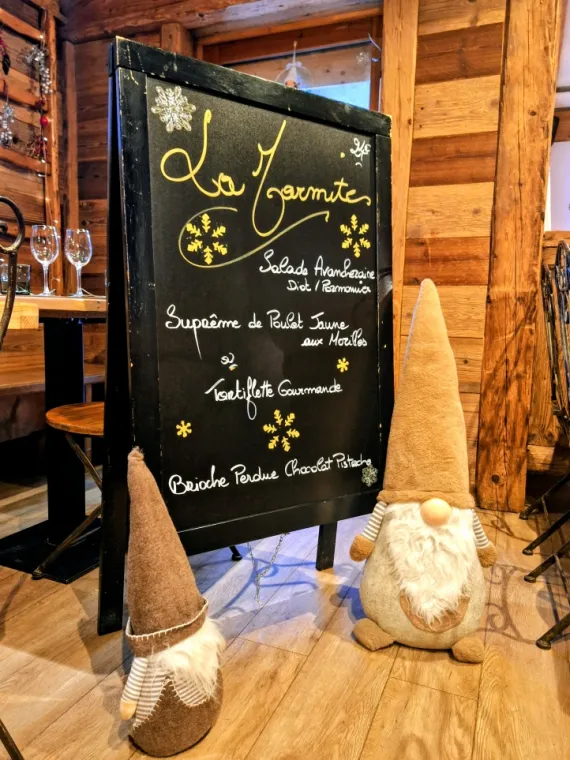 La Marmite
Salade Avancheraine
Diot / Pormonier
Suprême de Poulet Jaune
aux Morilles
ou
Tartiflette Gourmande
Brioche Perdue Chocolat Pistache